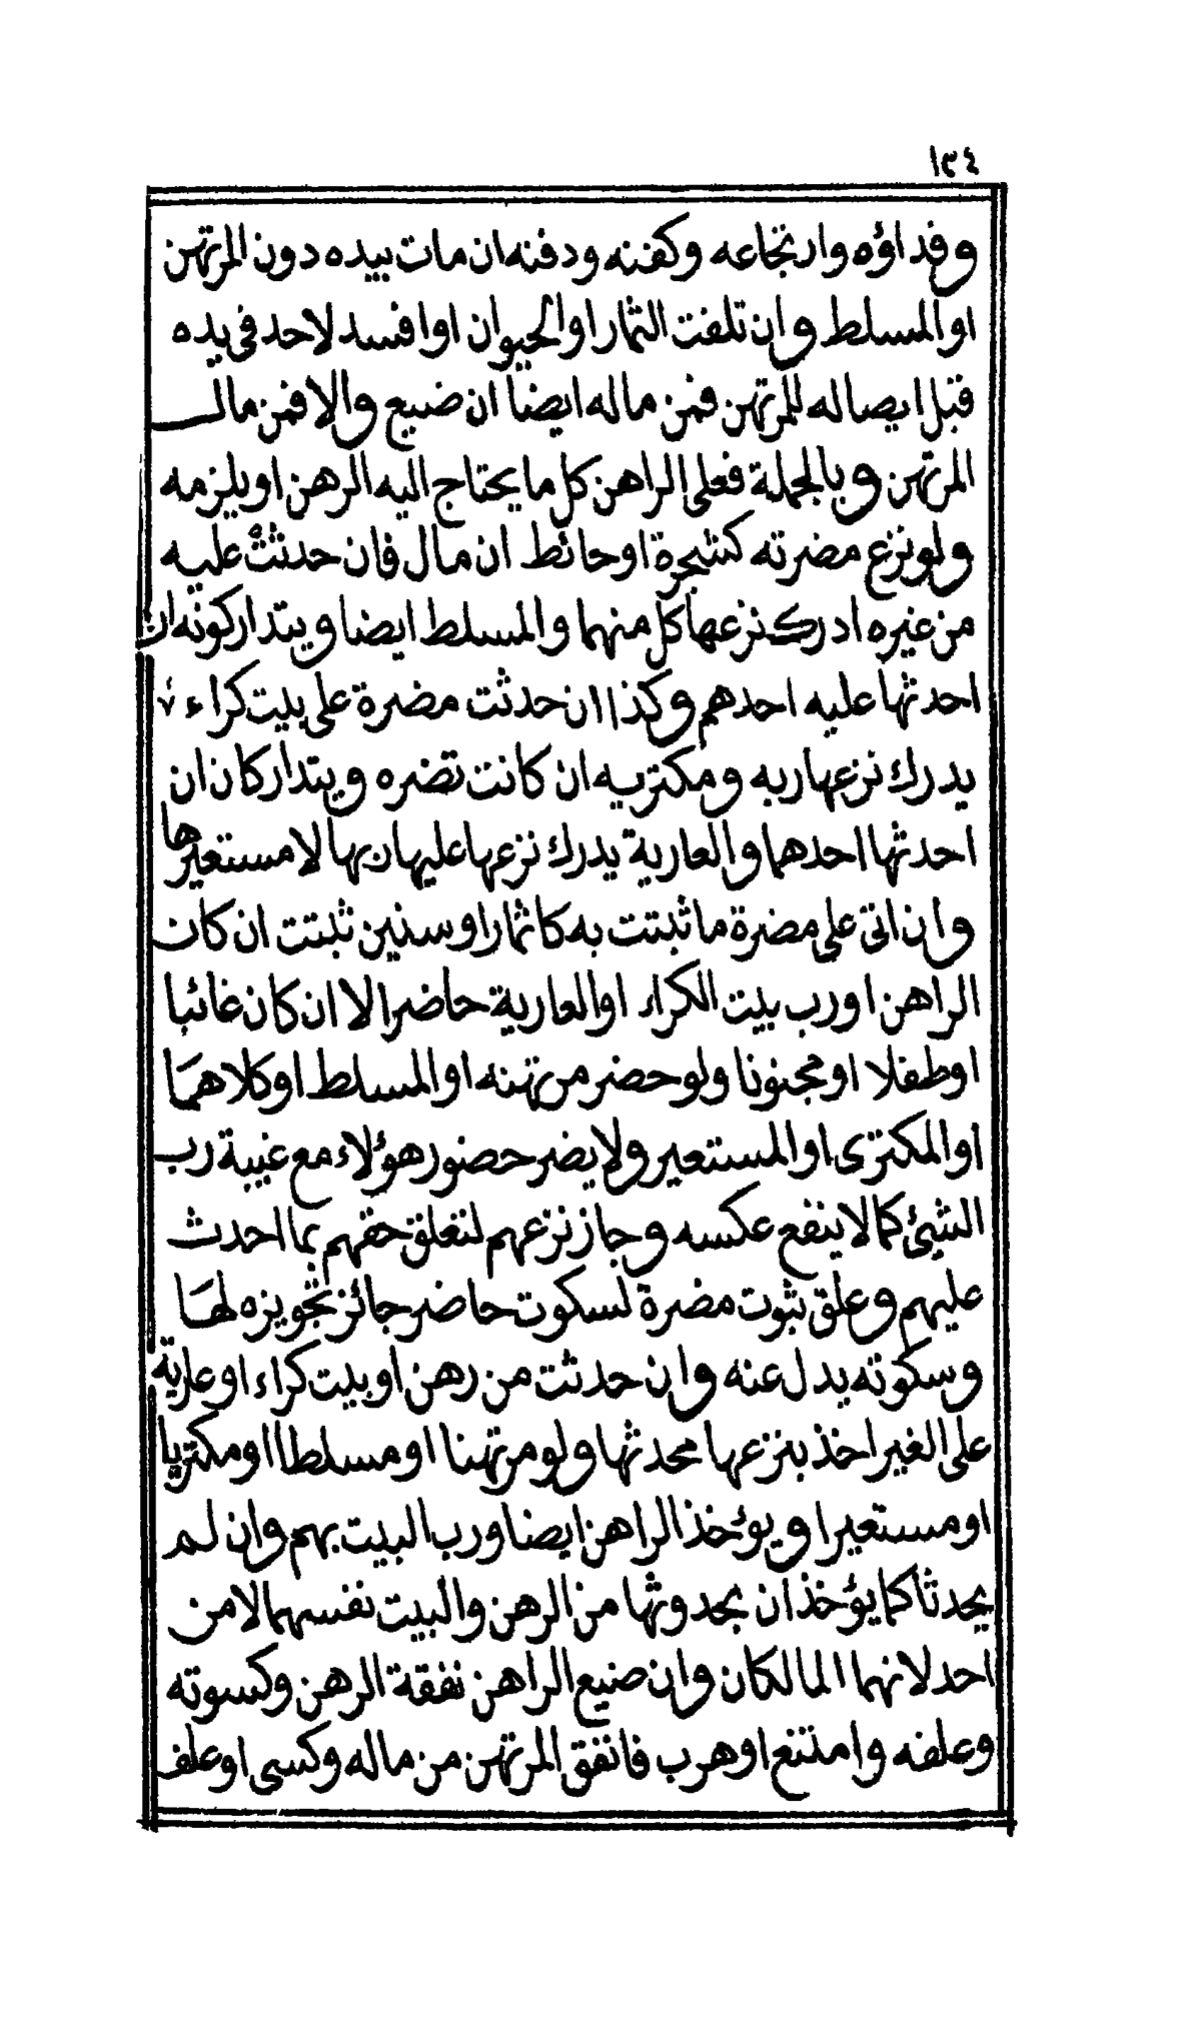 ١٣٤
وفداؤه وارتجاعه وكفنه ودفنه ان مات بيده دون المرتهن
او المسلط وان تلفت الثمار او الحيوان او افسد لاحد في يده
قبل ايصاله للمرتهن فمن ماله ايضا ان ضيع والا فمن مال
المرتهن وبالجملة فعلى الراهن كل ما يحتاج اليه الرهن او يلزمه
ولو نزع مضرته كشجرة او حائط ان مال فان حدثت عليه
من غيره ادرك نزعها كل منهما والمسلط ايضا ويتداركونه ان
احدثها عليه احدهم وكذا ان حدثت مضرة على بيت كراء
يدرك نزعها ربه ومكتريه ان كانت تضره ويتداركان ان
احدثها احدهما والعارية يدرك نزعها عليها ربها لا مستعيرها
وان اتى على مضرة ما ثبتت به كاثمار او سنين ثبتت ان كان
الراهن او رب بيت الكراء او العارية حاضرا لا ان كان غائبا
او طفلا او مجنونا ولو حضر مرتهنه او المسلط او كلاهما
او المكترى او المستعير ولا يضر حضور هؤلاء مع غيبة رب
الشئ كما لا ينفع عكسه وجاز نزعهم لتعلق حقهم بما احدث
عليهم وعلق بثبوت مضرة لسكوت حاضر جائز تجويزه لها
وسكوته يدل عنه وان حدثت من رهن او بيت كراء او عارية
على الغير اخذ بنزعها محدثها ولو مرتهنا او مسلطا او مكتريا
او مستعيرا ويؤخذ الراهن ايضا ورب البيت بهم وان لم
يحدثا كما يؤخذان بحدوثها من الرهن والبيت نفسهما لا من
احد لانهما المالكان وان ضيع الراهن نفقة الرهن وكسوته
وعلفه وامتنع او هرب فانفق المرتهن من ماله وكسى او علف